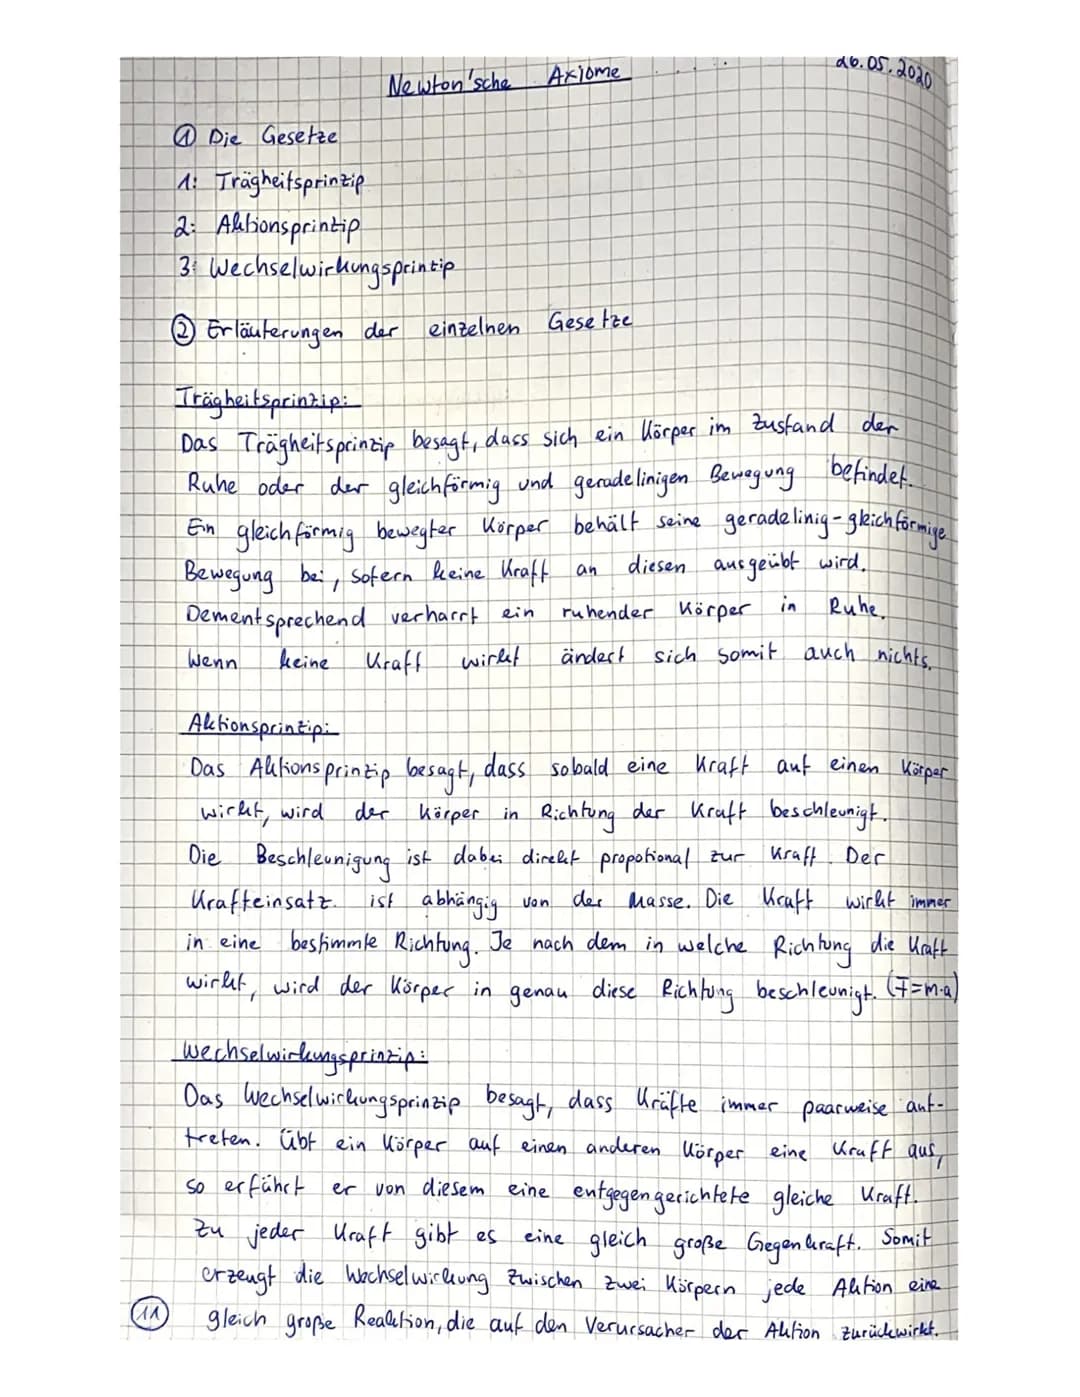 Newton'sche Axiome
26.05.2020
① Die Gesetze
1: Trägheitsprinzip
2: Aktionsprinzip
3: Wechselwirkungsprinzip
② Erläuterungen der einzelnen Gesetze
Trägheitsprinzip:
Das Trägheitsprinzip besagt, dass sich ein Körper im Zustand der
Ruhe oder der gleichförmig und geradelinigen Bewegung befindet.
Ein gleichförmig bewegter Körper behält seine geradelinig-gleichförmige
Bewegung bei, sofern keine Kraft an diesen ausgeübt wird.
Dementsprechend verharrt ein ruhender Körper in Ruhe.
Wenn keine Kraft wirkt ändert sich somit auch nichts.
Aktionsprinzip:
Das Aktionsprinzip besagt, dass sobald eine Kraft auf einen Körper
wirkt, wird der Körper in Richtung der Kraft beschleunigt.
Die Beschleunigung ist dabei direkt propotional zur Kraft. Der
Krafteinsatz ist abhängig von der Masse. Die Kraft wirkt immer
in eine bestimmte Richtung. Je nach dem in welche Richtung die Kraft
wirkt, wird der Körper in genau diese Richtung beschleunigt. (F=m·a)
Wechselwirkungsprinzip:
Das Wechselwirkungsprinzip besagt, dass Kräfte immer paarweise auf-
treten. Übt ein Körper auf einen anderen Körper eine Kraft aus,
so erfährt er von diesem eine entgegengerichtete gleiche Kraft.
Zu jeder Kraft gibt es eine gleich große Gegenkraft. Somit
erzeugt die Wechselwirkung zwischen zwei Körpern jede Aktion eine
gleich große Reaktion, die auf den Verursacher der Aktion zurückwirkt.
11